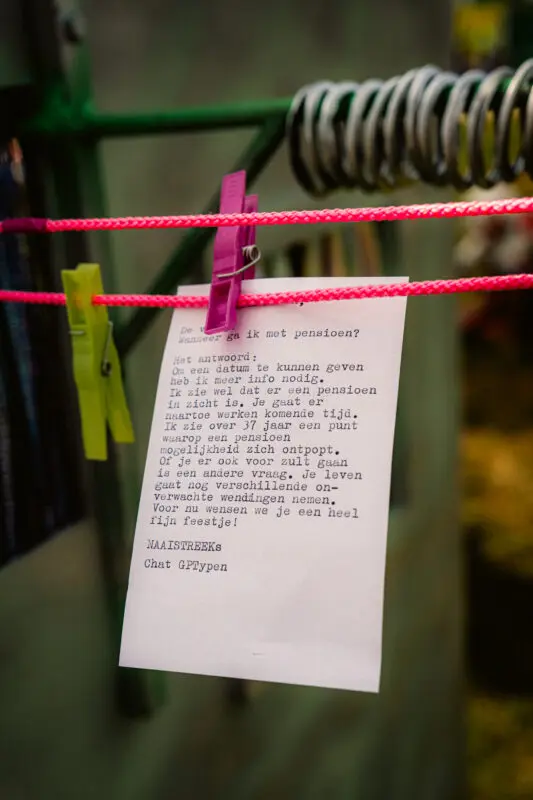 De
Wanneer ga ik met pensioen?
Het antwoord:
Om een datum te kunnen geven
heb ik meer info nodig.
Ik zie wel dat er een pensioen
in zicht is. Je gaat er
naartoe werken komende tijd.
Ik zie over 37 jaar een punt
waarop een pensioen
mogelijkheid zich ontpopt.
Of je er ook voor zult gaan
is een andere vraag. Je leven
gaat nog verschillende on-
verwachte wendingen nemen.
Voor nu wensen we je een heel
fijn feestje!
NAAISTREEKs
Chat GPTypen